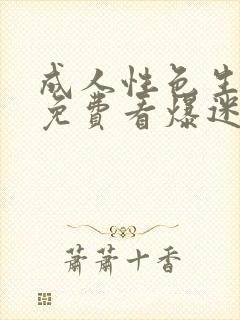 成人性色生
免费看爆迷
萧萧十香